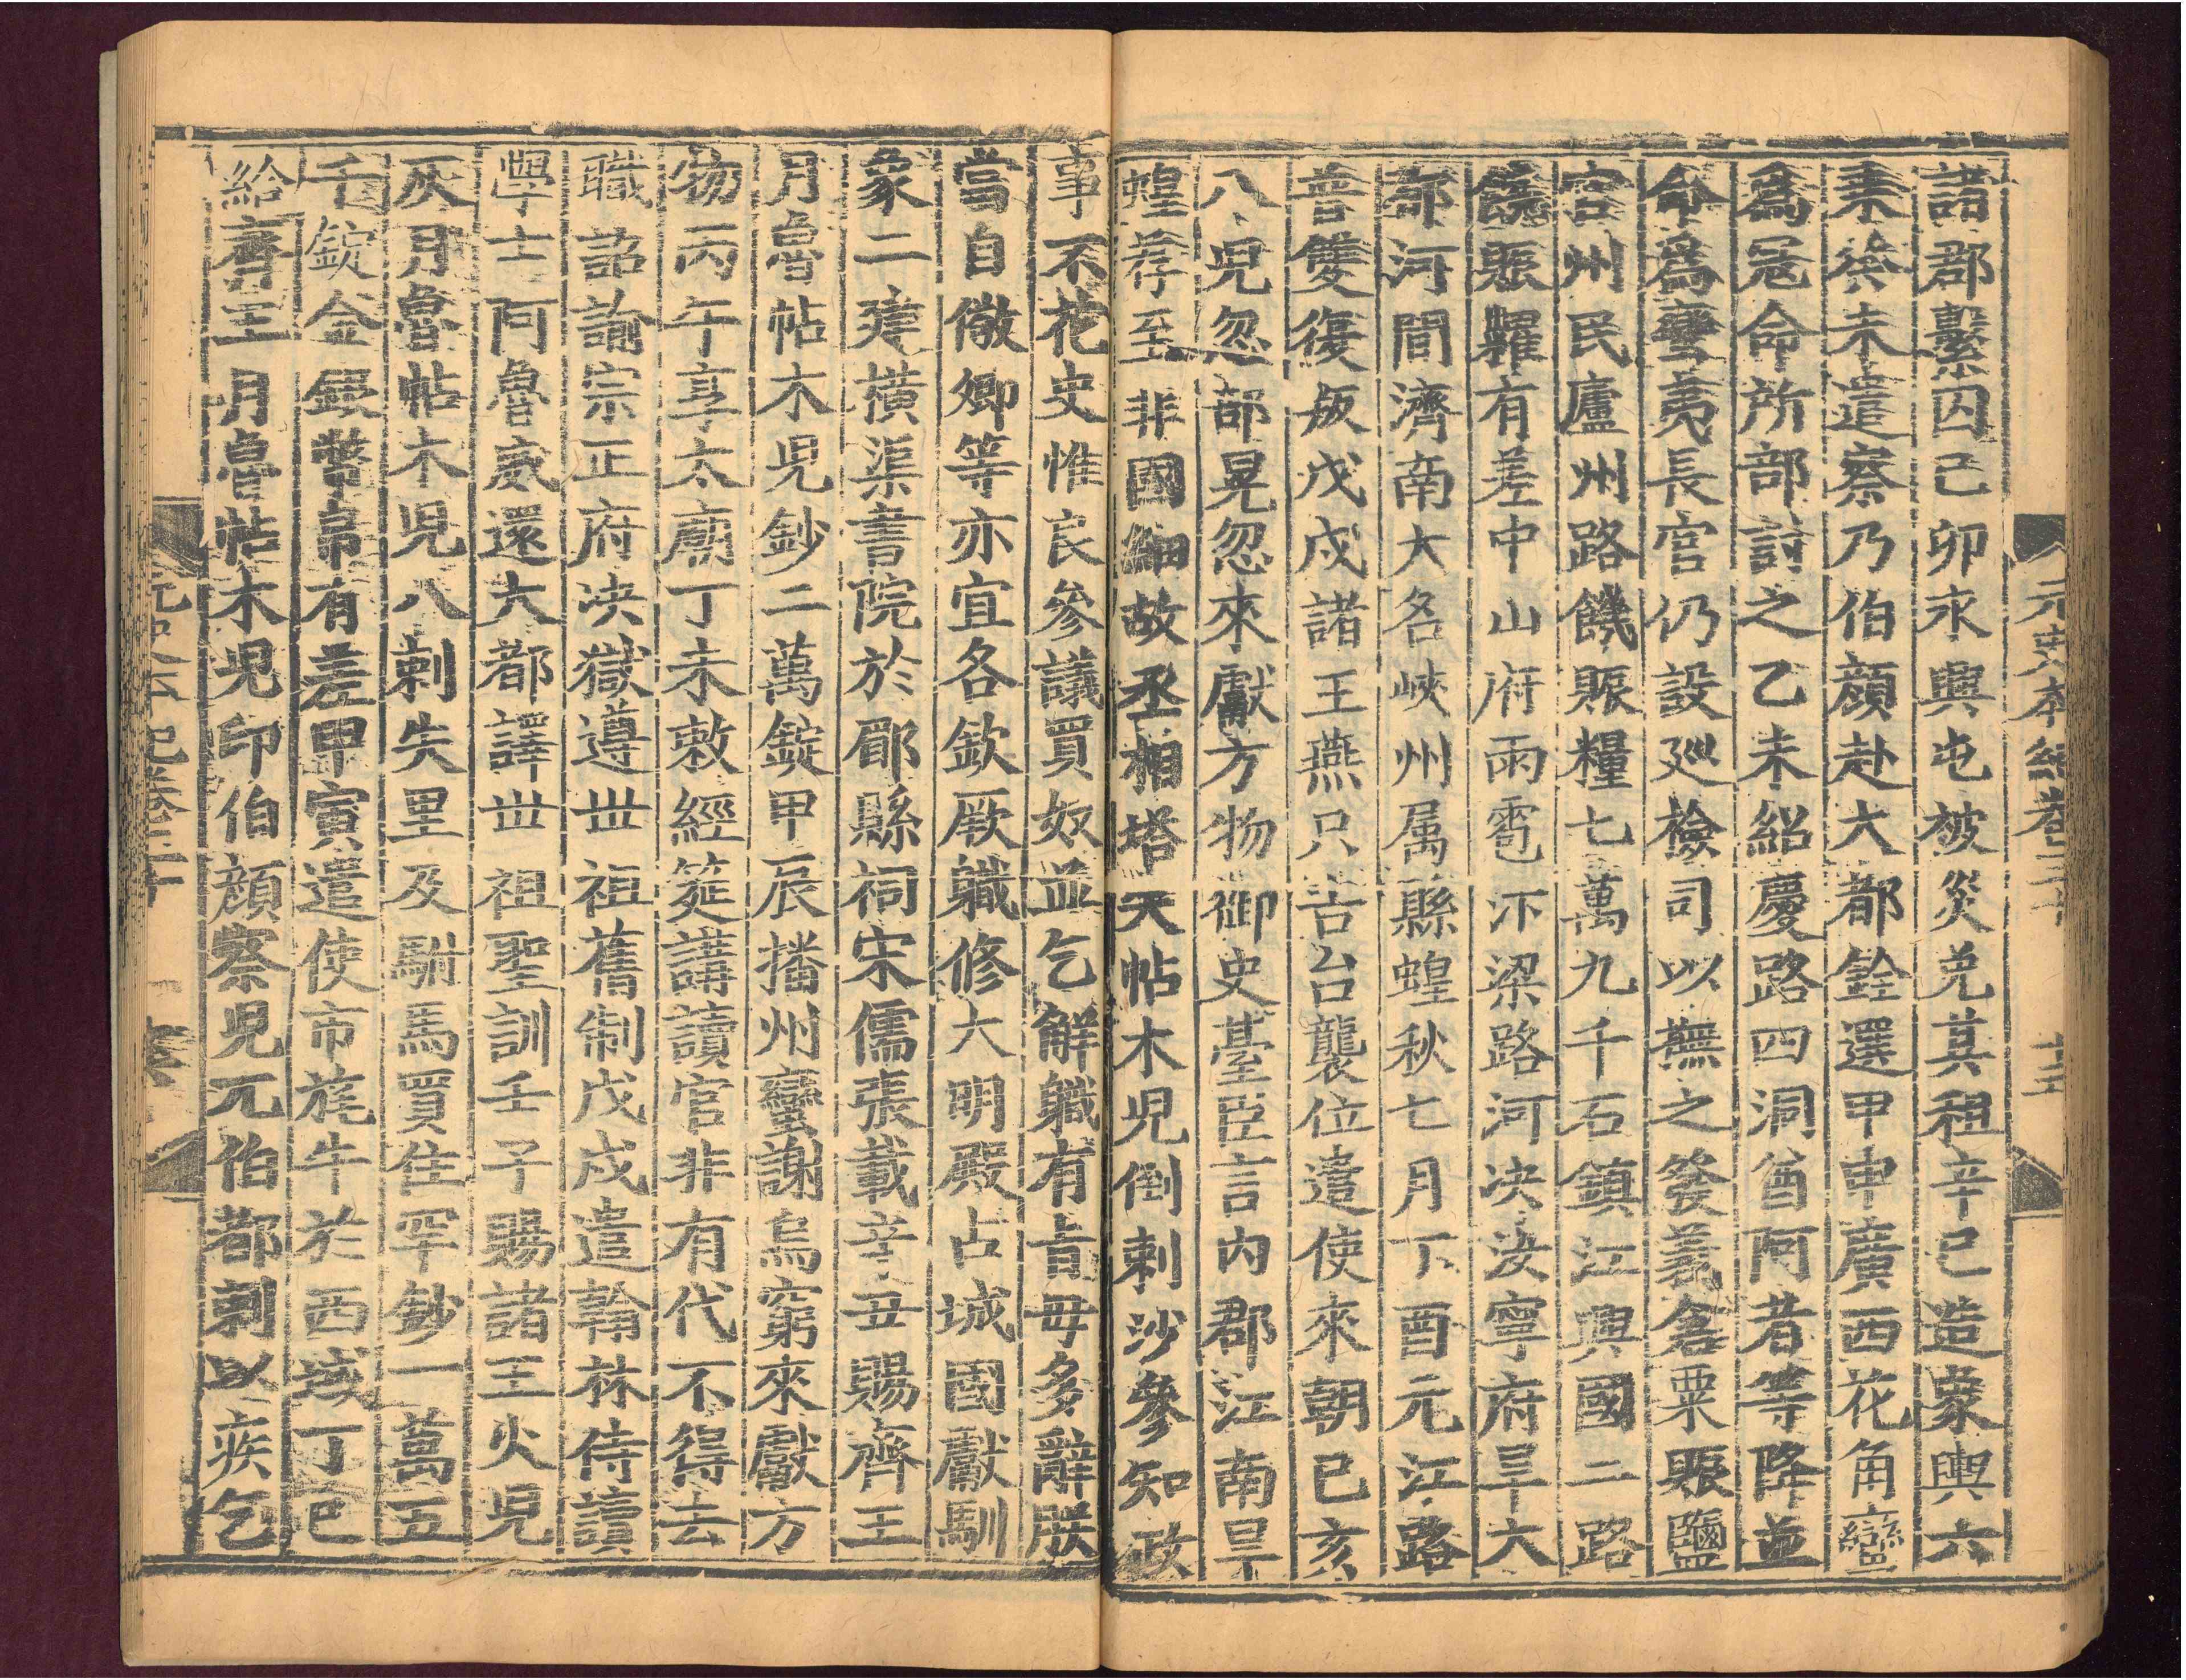 元史本紀卷三十 十五
諸郡繫囚己卯永興屯被災免其租辛巳造象輿六
乘癸未遣察乃伯顔赴大都銓選甲申廣西花角蠻
爲冦命所部討之乙未紹慶路四洞酋阿者等降並
命爲蠻夷長官仍設廵檢司以撫之發義倉粟賑鹽
官州民廬州路饑賑糧七萬九千石鎮江興國二路
饑賑糶有差中山府雨雹汴梁路河决汝寧府旱大
都河間濟南大名峽州属縣蝗秋七月丁酉元江路
普雙復叛戊戌諸王燕只吉台襲位遣使來朝己亥
八兒忽部晃忽來獻方物御史臺臣言内郡江南旱
蝗荐至非國細故丞相塔失帖木兒倒剌沙參知政
事不花史惟良參議買奴並乞解職有旨毋多辭朕
當自儆卿等亦宜各欽厥職修大明殿占城國獻馴
象二建橫渠書院於郿縣祠宋儒張載辛丑賜齊王
月魯帖木兒鈔二萬錠甲辰播州蠻謝烏窮來獻方
物丙午享太廟丁未敕經筵講讀官非有代不得去
職詔諭宗正府决獄遵丗祖舊制戊戌遣翰林侍讀
學士阿魯威還大都譯丗祖聖訓壬子賜諸王火兒
灰月魯帖木兒八剌失里及駙馬買住罕鈔一萬五
千錠金銀幣帛有差甲寅遣使市旄牛於西域丁巳
給齊王月魯帖木兒印伯顔察兒兀伯都剌以疾乞
元史本紀卷三十